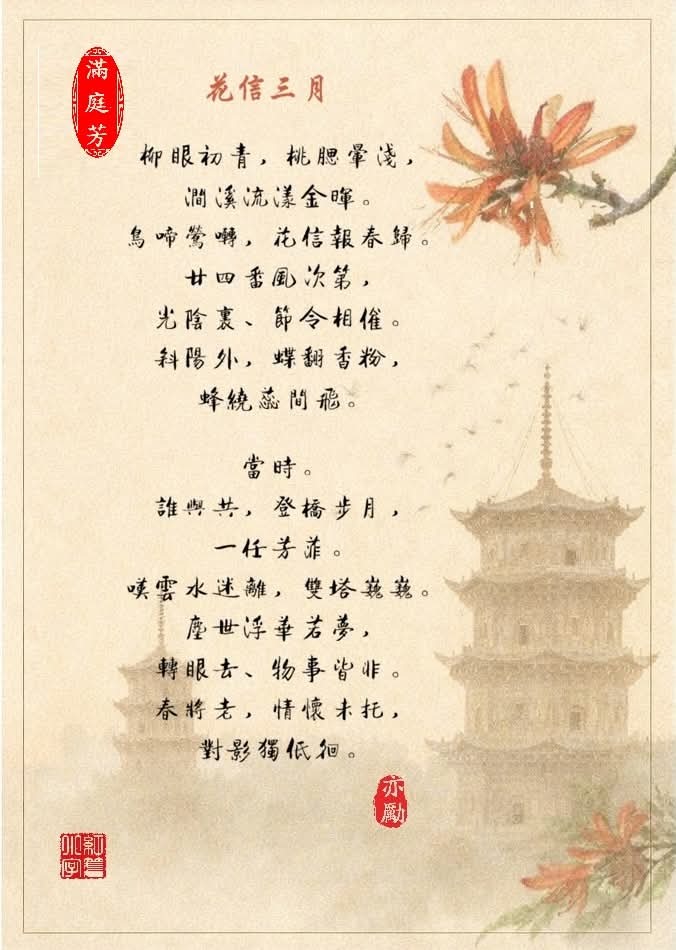 滿庭芳
花信三月
柳眼初青，桃腮暈淺，
澗溪流漾金暉。
鳥啼鶯囀，花信報春歸。
廿四番風次第，
光陰裏、節令相催。
斜陽外，蝶翻香粉，
蜂繞蕊間飛。
當時。
誰與共，登橋步月，
一任芳菲。
嘆雲水迷離，雙塔巍巍。
塵世浮華若夢，
轉眼去、物事皆非。
春將老，情懷未托，
對影獨低徊。
亦勵
紅箋小字